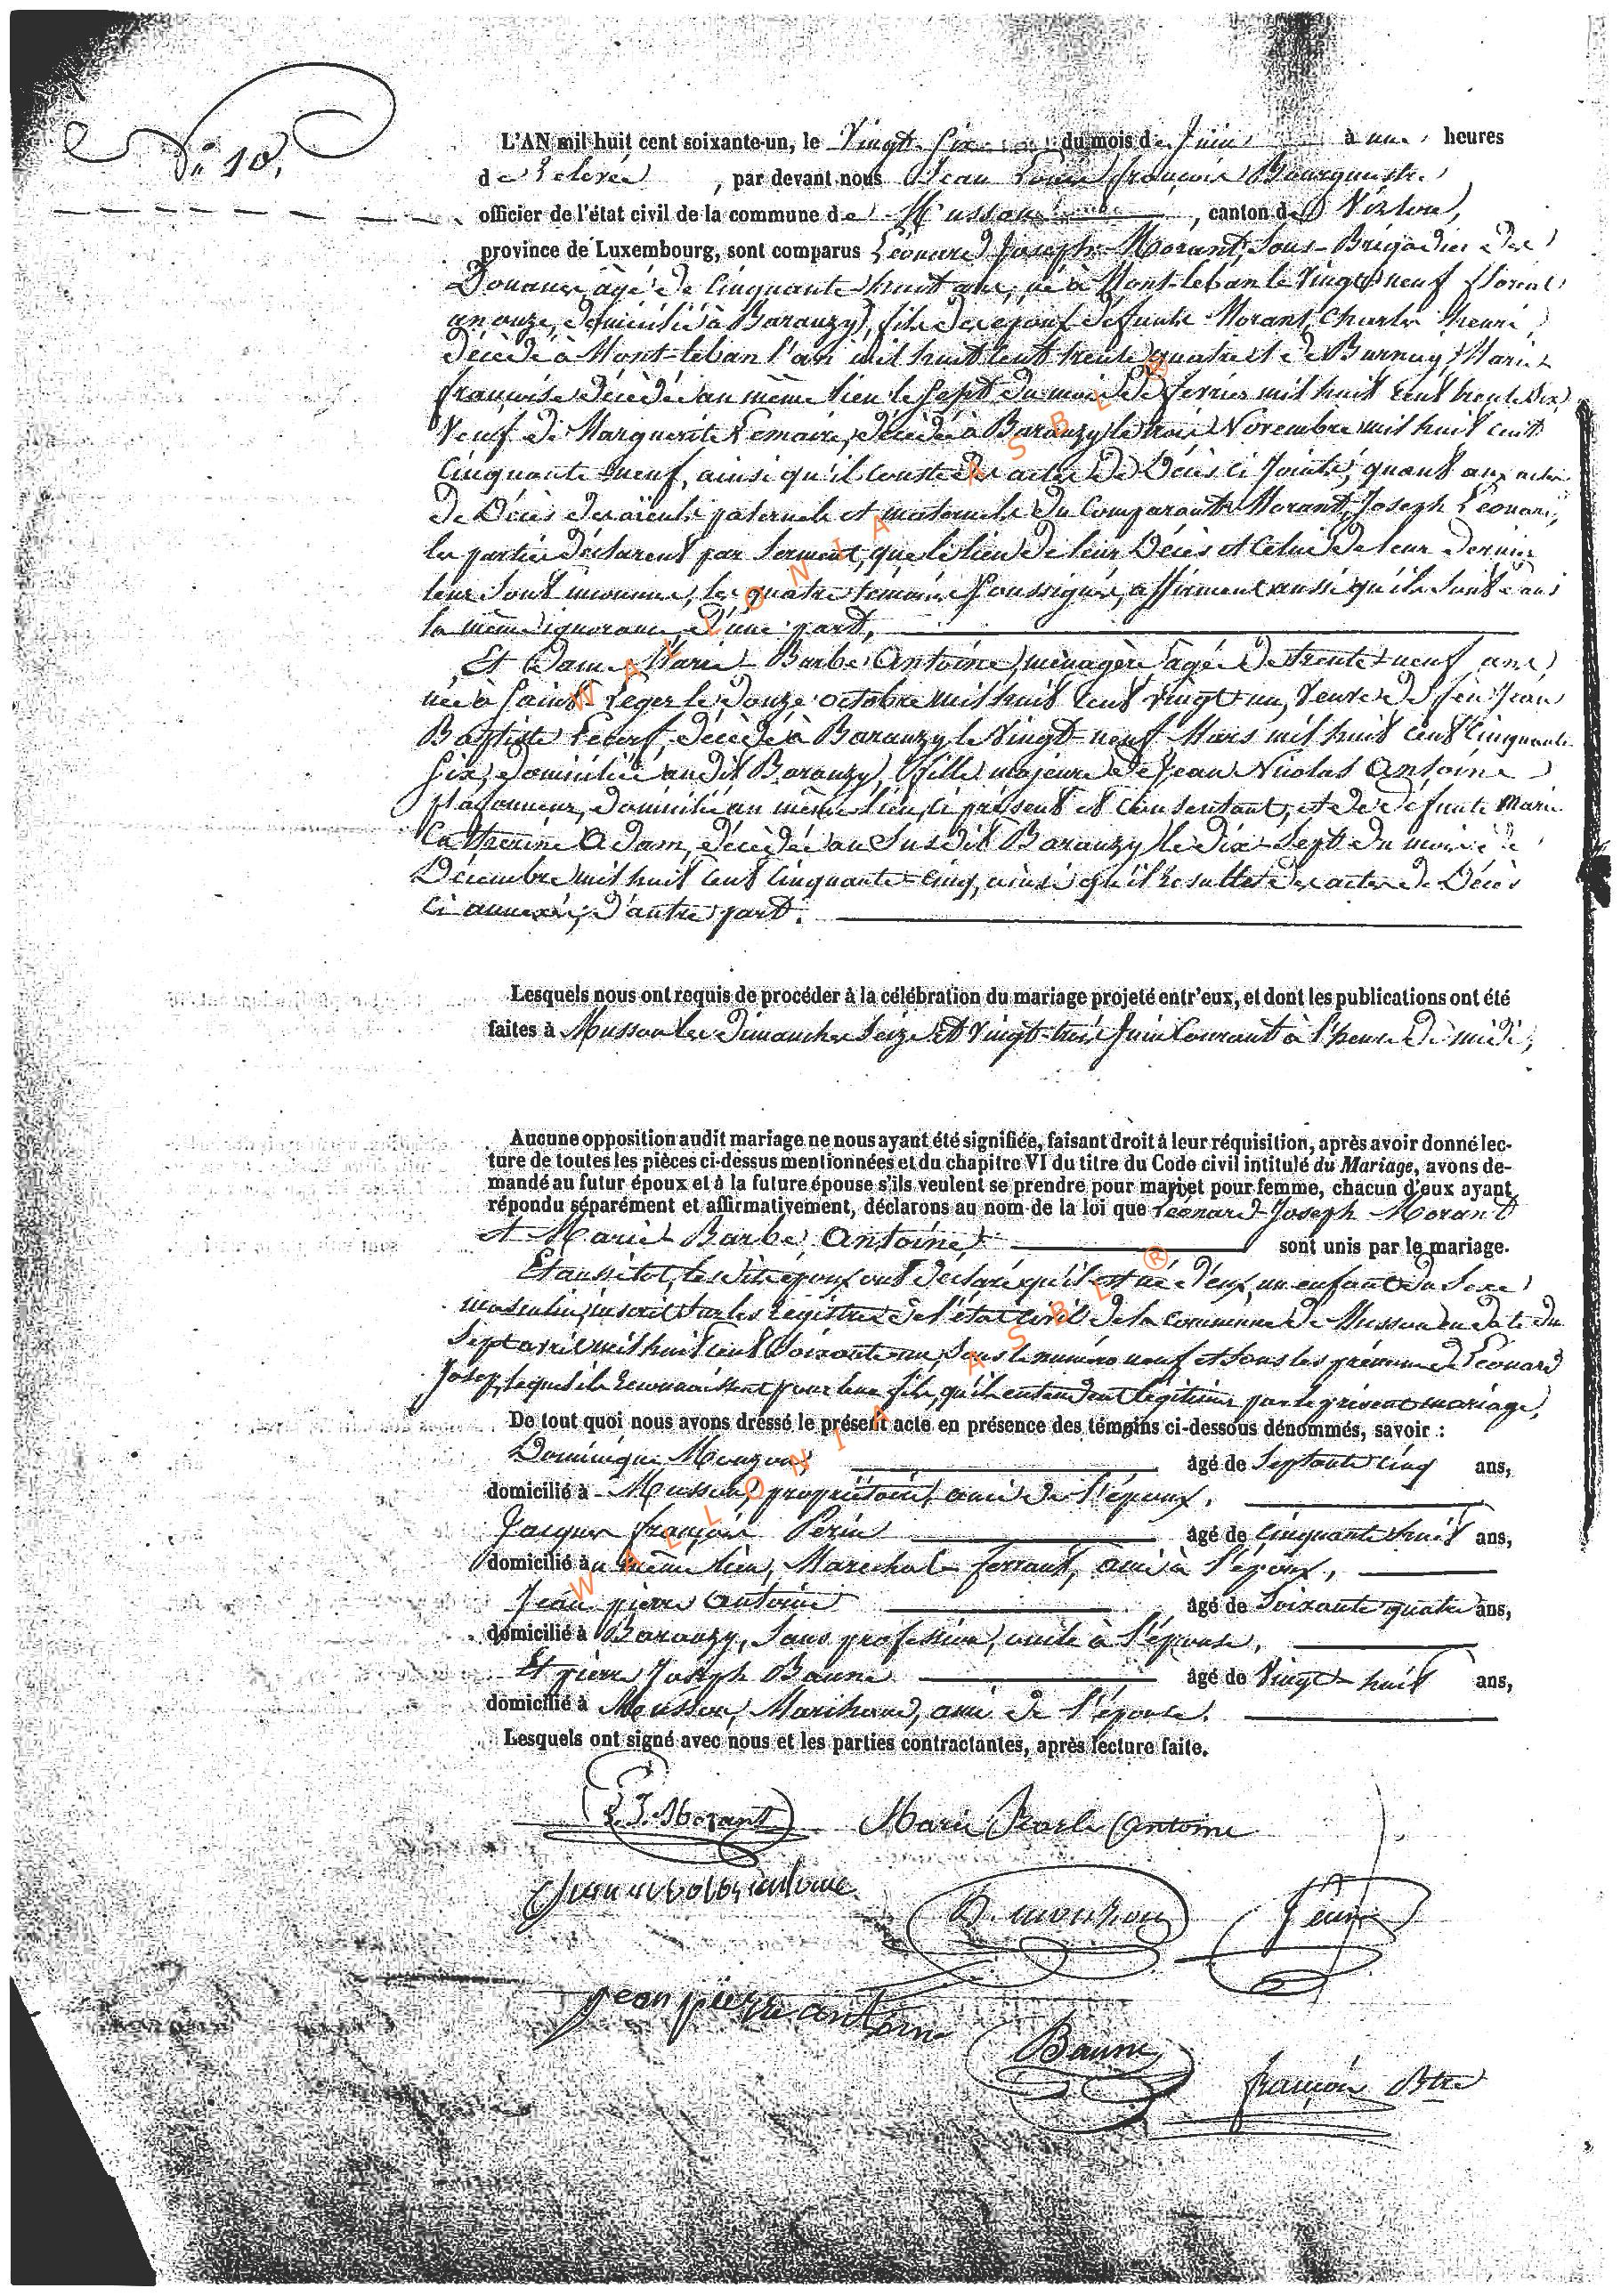 N° 10.
L'AN mil huit cent soixante-un, le Vingt Six du mois de Juin à une heures
de relevée, par devant nous Jean Louis françois Bourgmestre
officier de l'état civil de la commune de Musson, canton de Virton,
province de Luxembourg, sont comparus Léonard Joseph Morant, Sous-Brigadier des
Douanes, âgé de Cinquante huit ans, né à Mont-leban le Vingt neuf floréal
an onze, domicilié à Baranzy, fils des époux défunts Morant, Charles henri,
décédé à Mont-leban l'an mil huit cent trente quatre et de Burnuy, Marie
françoise décédée au même lieu le Sept du mois de février mil huit cent trente six
Veuf de Marguerite Lemaire, décédée à Baranzy le trois Novembre mil huit cent
Cinquante neuf, ainsi qu'il conste des actes de Décès ci Joints, quant aux actes
de Décès des aïeuls paternels et maternels du Comparant Morant, Joseph Léonard,
les parties déclarent par Serment, que le lieu de leur Décès et Celui de leur dernier
leur Sont inconnus, les quatre témoins Soussignés, affirment aussi qu'ils Sont dans
la même ignorance, d'une part,
Et Dame Marie Barbe Antoine, ménagère âgée de trente-neuf ans
née à Saint-Leger le douze octobre mil huit cent vingt un, Veuve de feu Jean
Baptiste Lecerf, décédé à Baranzy le Vingt-neuf Mars mil huit cent Cinquante
Six, domiciliée audit Baranzy, fille majeure de Jean Nicolas Antoine
plafonneur, domicilié au même lieu, ci présent et Consentant, et de défunte Marie
Catherine Adam, décédée au Susdit Baranzy le dix-Sept du mois de
Décembre mil huit cent Cinquante-Cinq, ainsi qu'il résulte des actes de Décès
Ci annexés, d'autre part.
Lesquels nous ont requis de procéder à la célébration du mariage projeté entr'eux, et dont les publications ont été
faites à Musson les Dimanches Seize et Vingt-trois Juin Courant à l'heure de midi;
Aucune opposition audit mariage ne nous ayant été signifiée, faisant droit à leur réquisition, après avoir donné lec-
ture de toutes les pièces ci-dessus mentionnées et du chapitre VI du titre du Code civil intitulé du Mariage, avons de-
mandé au futur époux et à la future épouse s'ils veulent se prendre pour mari et pour femme, chacun d'eux ayant
répondu séparément et affirmativement, déclarons au nom de la loi que Léonard Joseph Morant
et Marie Barbe Antoine sont unis par le mariage.
Et aussitôt, les dits époux ont déclaré qu'il est né d'eux, un enfant du Sexe
masculin, inscrit sur les registres de l'état civil de la Commune de Musson en date du
Sept avril mil huit cent Soixante-un, Sous le numéro neuf et Sous les prénoms de Léonard
Josep, lequel ils reconnaissent pour leur fils, qu'ils entendent légitimer par le présent mariage.
De tout quoi nous avons dressé le présent acte en présence des témoins ci-dessous dénommés, savoir :
Dominique Monzon, âgé de Septante cinq ans,
domicilié à Musson, propriétaire, ami de l'époux,
Jacques françois Perin âgé de cinquante huit ans,
domicilié au même lieu, Maréchal ferrant, ami à l'époux,
Jean pierre Antoine âgé de Soixante quatre ans,
domicilié à Baranzy, Sans profession, oncle à l'épouse,
Et pierre Joseph Baune âgé de Vingt-huit ans,
domicilié à Musson, Marchand, ami de l'épouse.
Lesquels ont signé avec nous et les parties contractantes, après lecture faite.
L. J. Morant Marie Barbe Antoine
Jean nicolas antoine
D. monzon Périn
jean pierre antoine
Baune
françois Btre
WALLONIA ASBL ®
WALLONIA ASBL ®